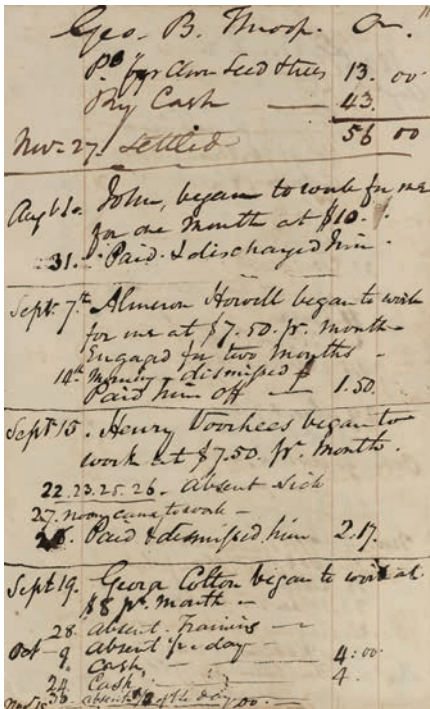 Geo. B. Throop. Cr.
By Cash — 43.
56 00
Nov- 27. Settled
Aug 20. John, began to work for me
for one month at $10.
31. Paid & discharged him.
Sept. 7.th Almeron Howell began to work
for me at $7.50. pr. month
Engaged for two months -
14th Morning dismissed &
Paid him off — 1.50.
Sept 15. Henry Voorhees began to
work at $7.50. pr. month.
22.23.25.26. absent sick
27. noon came to work -
28. Paid & dismissed him 2.17.
Sept 19. George Colton began to work at
$8 pr. month -
28 absent. Training -
Oct - 9 absent day
Cash, 4.00
24 Cash 4.
30 absent of the day